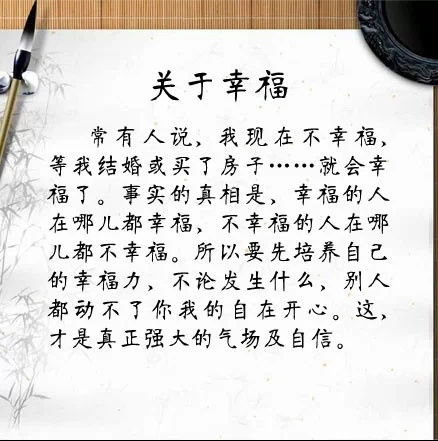 关于幸福
常有人说，我现在不幸福，
等我结婚或买了房子……就会幸
福了。事实的真相是，幸福的人
在哪儿都幸福，不幸福的人在哪
儿都不幸福。所以要先培养自己
的幸福力，不论发生什么，别人
都动不了你我的自在开心。这，
才是真正强大的气场及自信。